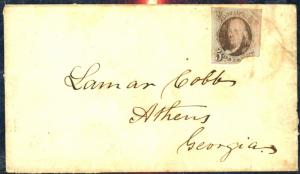 Lamar Cobb
Athens
Georgia